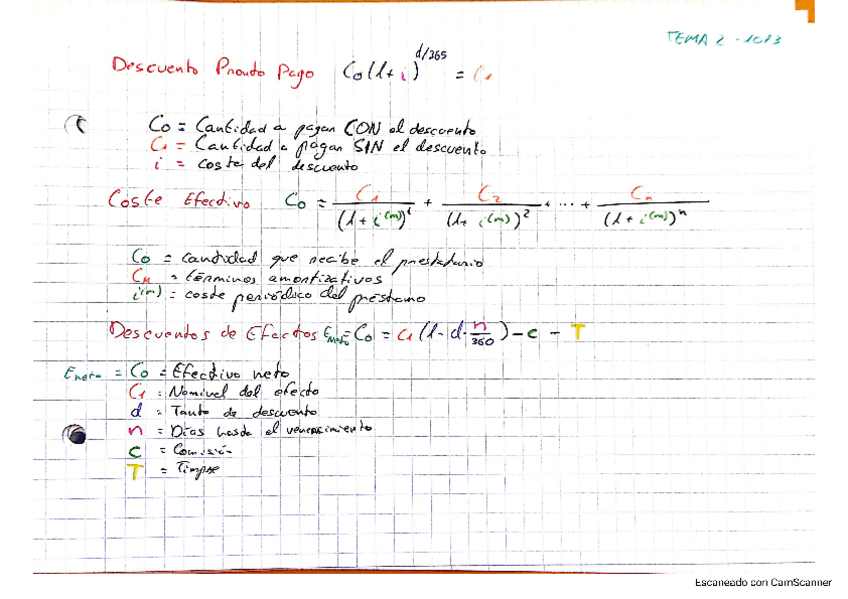 TEMA 2 - 10B3
Descuento Pronto Pago C₀(1+i)^d/365 = C₁
C₀ = Cantidad a pagar CON el descuento
C₁ = Cantidad a pagar SIN el descuento
i = coste del descuento
Coste Efectivo C₀ = C₁/(1+i^(m))¹ + C₂/(1+i^(m))² + ... + Cₙ/(1+i^(m))ⁿ
C₀ = cantidad que recibe el prestatario
Cₙ = términos amortizativos
i^(m) = coste periódico del préstamo
Descuentos de Efectos E_Neto = C₀ = C₁(1-d·n/360) - c - T
E_neto = C₀ = Efectivo neto
C₁ = Nominal del efecto
d = Tanto de descuento
n = Días hasta el vencimiento
c = Comisión
T = Timbre
Escaneado con CamScanner